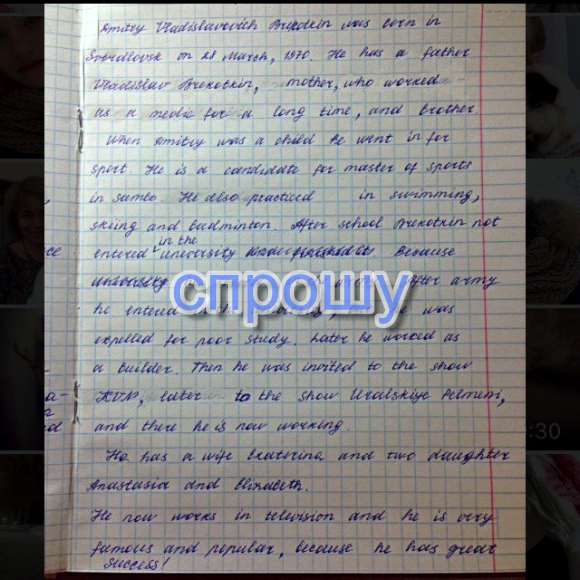 Dmitry Vladislavovich Brekotkin was born in
Sverdlovsk on 28 March, 1970. He has a father
Vladislav Brekotkin, mother, who worked
as a medic for a long time, and brother.
When Dmitry was a child he went in for
sport. He is a candidate for master of sports
in sambo. He also practiced in swimming,
skiing and badminton. After school Brekotkin not
in the
entered university because
university after army
he entered was
спрошу
expelled for poor study. Later he worked as
a builder. Then he was invited to the show
KVN, later to the show Uralskiye Pelmeni,
and there he is now working.
He has a wife Ekaterina and two daughter
Anastasia and Elizabeth.
He now works in television and he is very
famous and popular, because he has great
success!
:30